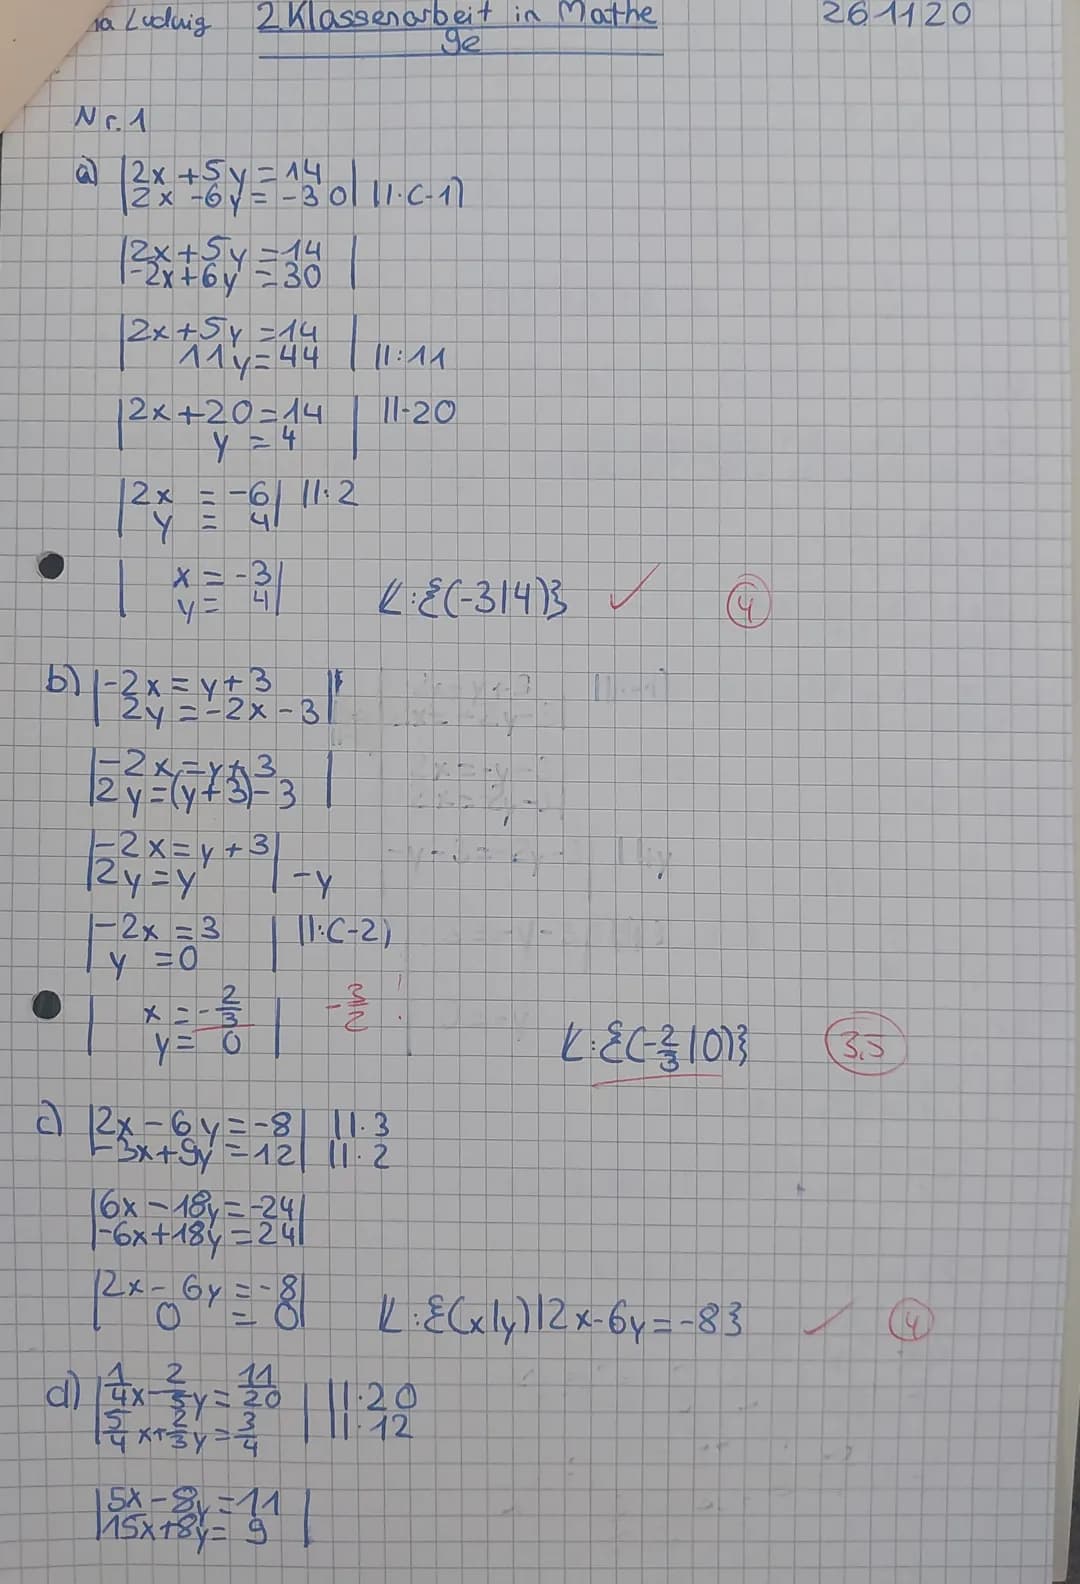 na Ludwig 2. Klassenarbeit in Mathe 261120
9e
Nr. 1
a) |2x + 5y = 14
|2x - 6y = -30| II·(-1)
|2x + 5y = 14 |
|-2x + 6y = 30 |
|2x + 5y = 14 |
11y = 44 | II:11
|2x + 20 = 14 | II-20
y = 4
|2x = -6| II:2
y = 4|
| x = -3|
| y = 4| L:{(-3|4)} ✓ 4
b) |-2x = y + 3 |
|2y = -2x - 3|
|-2x = y + 3 |
|2y = (y + 3) - 3 |
|-2x = y + 3|
|2y = y | -y
|-2x = 3 | II:(-2)
|y = 0 |
| x = -2/3 | -3/2 !
| y = 0 | L:{(-2/3|0)} 3,5
c) |2x - 6y = -8| II·3
|-3x + 9y = 12| II·2
|6x - 18y = -24|
|-6x + 18y = 24|
|2x - 6y = -8|
| 0 = 0| L:{(x|y)|2x-6y=-8} ✓ 4
d) |1/4x - 2/5y = 11/20 | II·20
|5/4x + 2/3y = 3/4 | II·12
|5x - 8y = 11 |
|15x + 8y = 9 |